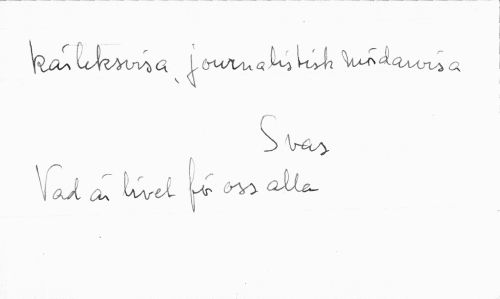 kärleksvisa, journalistisk mördarvisa
Svar
Vad är livet för oss alla